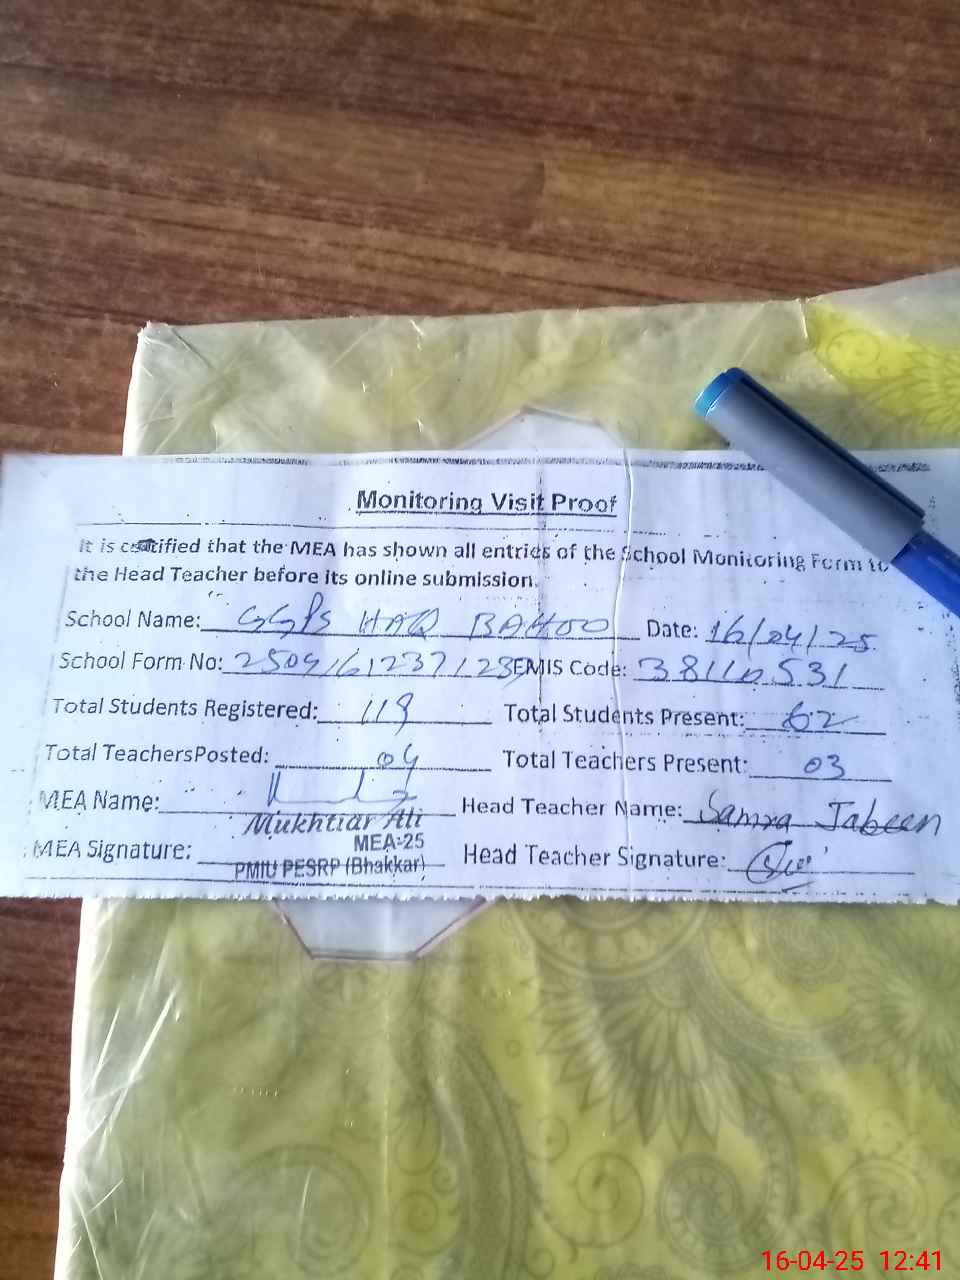 Monitoring Visit Proof
It is certified that the MEA has shown all entries of the School Monitoring Form to
the Head Teacher before its online submission.
School Name: GGPS HAQ BAHOO Date: 16/04/25
School Form No: EMIS Code:
Total Students Registered: 119 Total Students Present: 62
Total TeachersPosted: 04 Total Teachers Present: 03
MEA Name: Head Teacher Name: Samra Jabeen
Mukhtiar Ali
MEA-25
MEA Signature: Head Teacher Signature:
PMIU PESRP (Bhakkar)
16-04-25 12:41